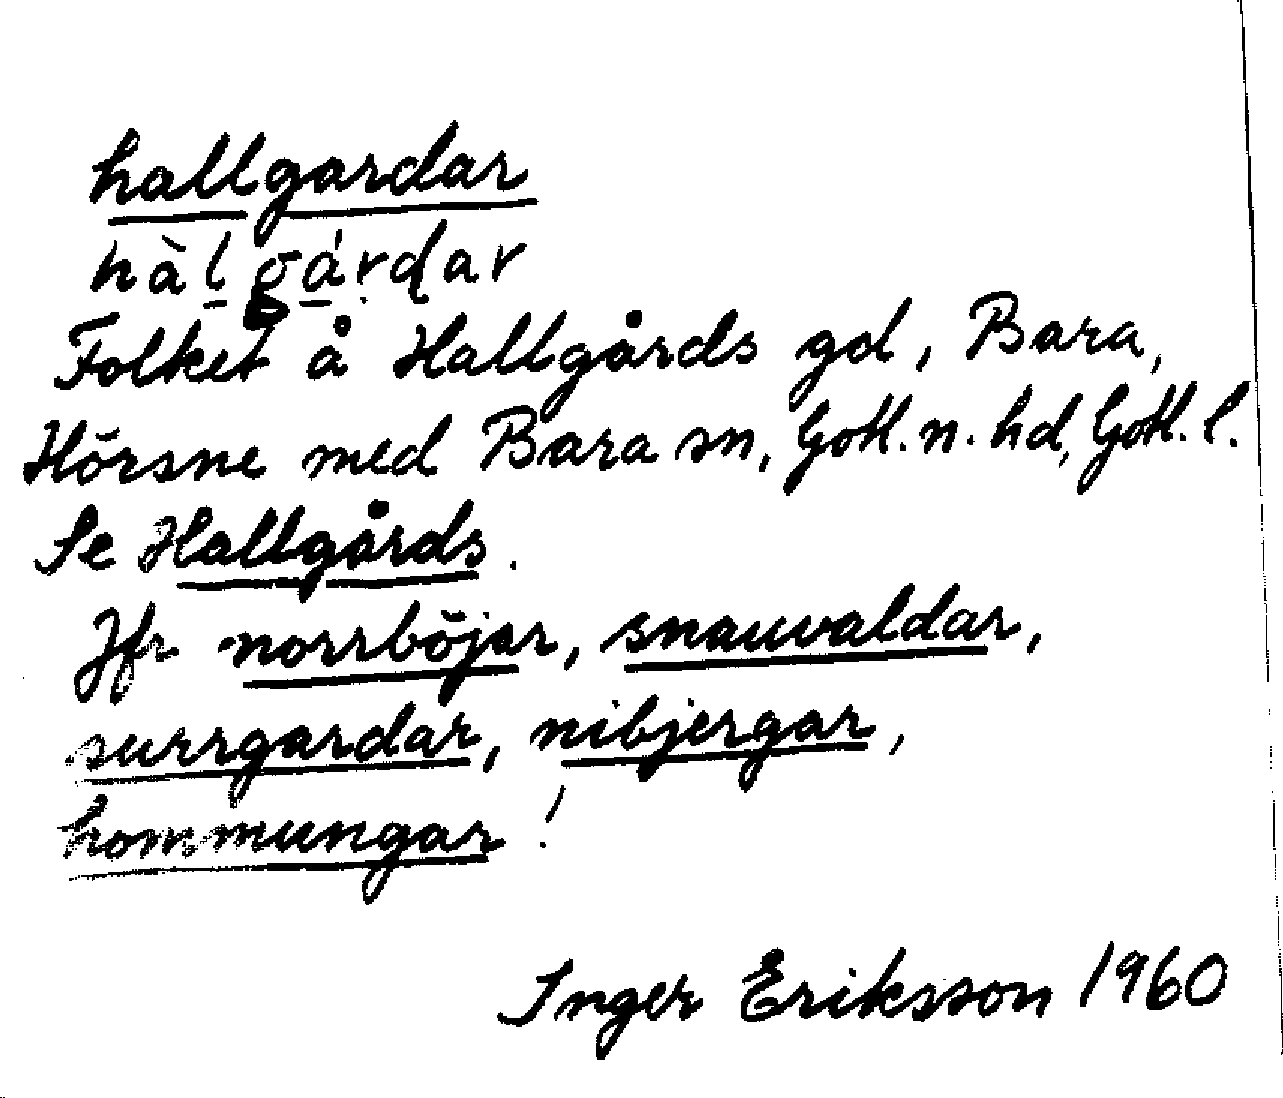 hallgardar
hàlgárdar
Folket å Hallgårds gd, Bara,
Hörsne med Bara sn, Gotl. n. hd, Gotl. l.
Se Hallgårds.
Jfr norrböjar, snauvaldar,
surrgardar, nibjergar,
hommungar!
Inger Eriksson 1960